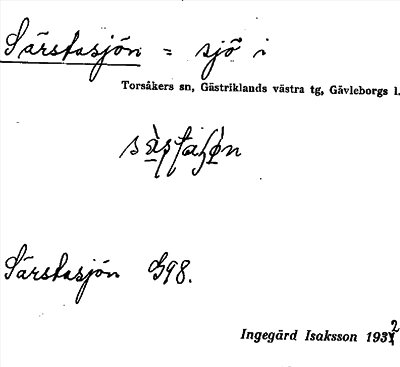 Särstasjön = sjö i
Torsåkers sn, Gästriklands västra tg, Gävleborgs l.
Särstasjön G98.
Ingegärd Isaksson 1932